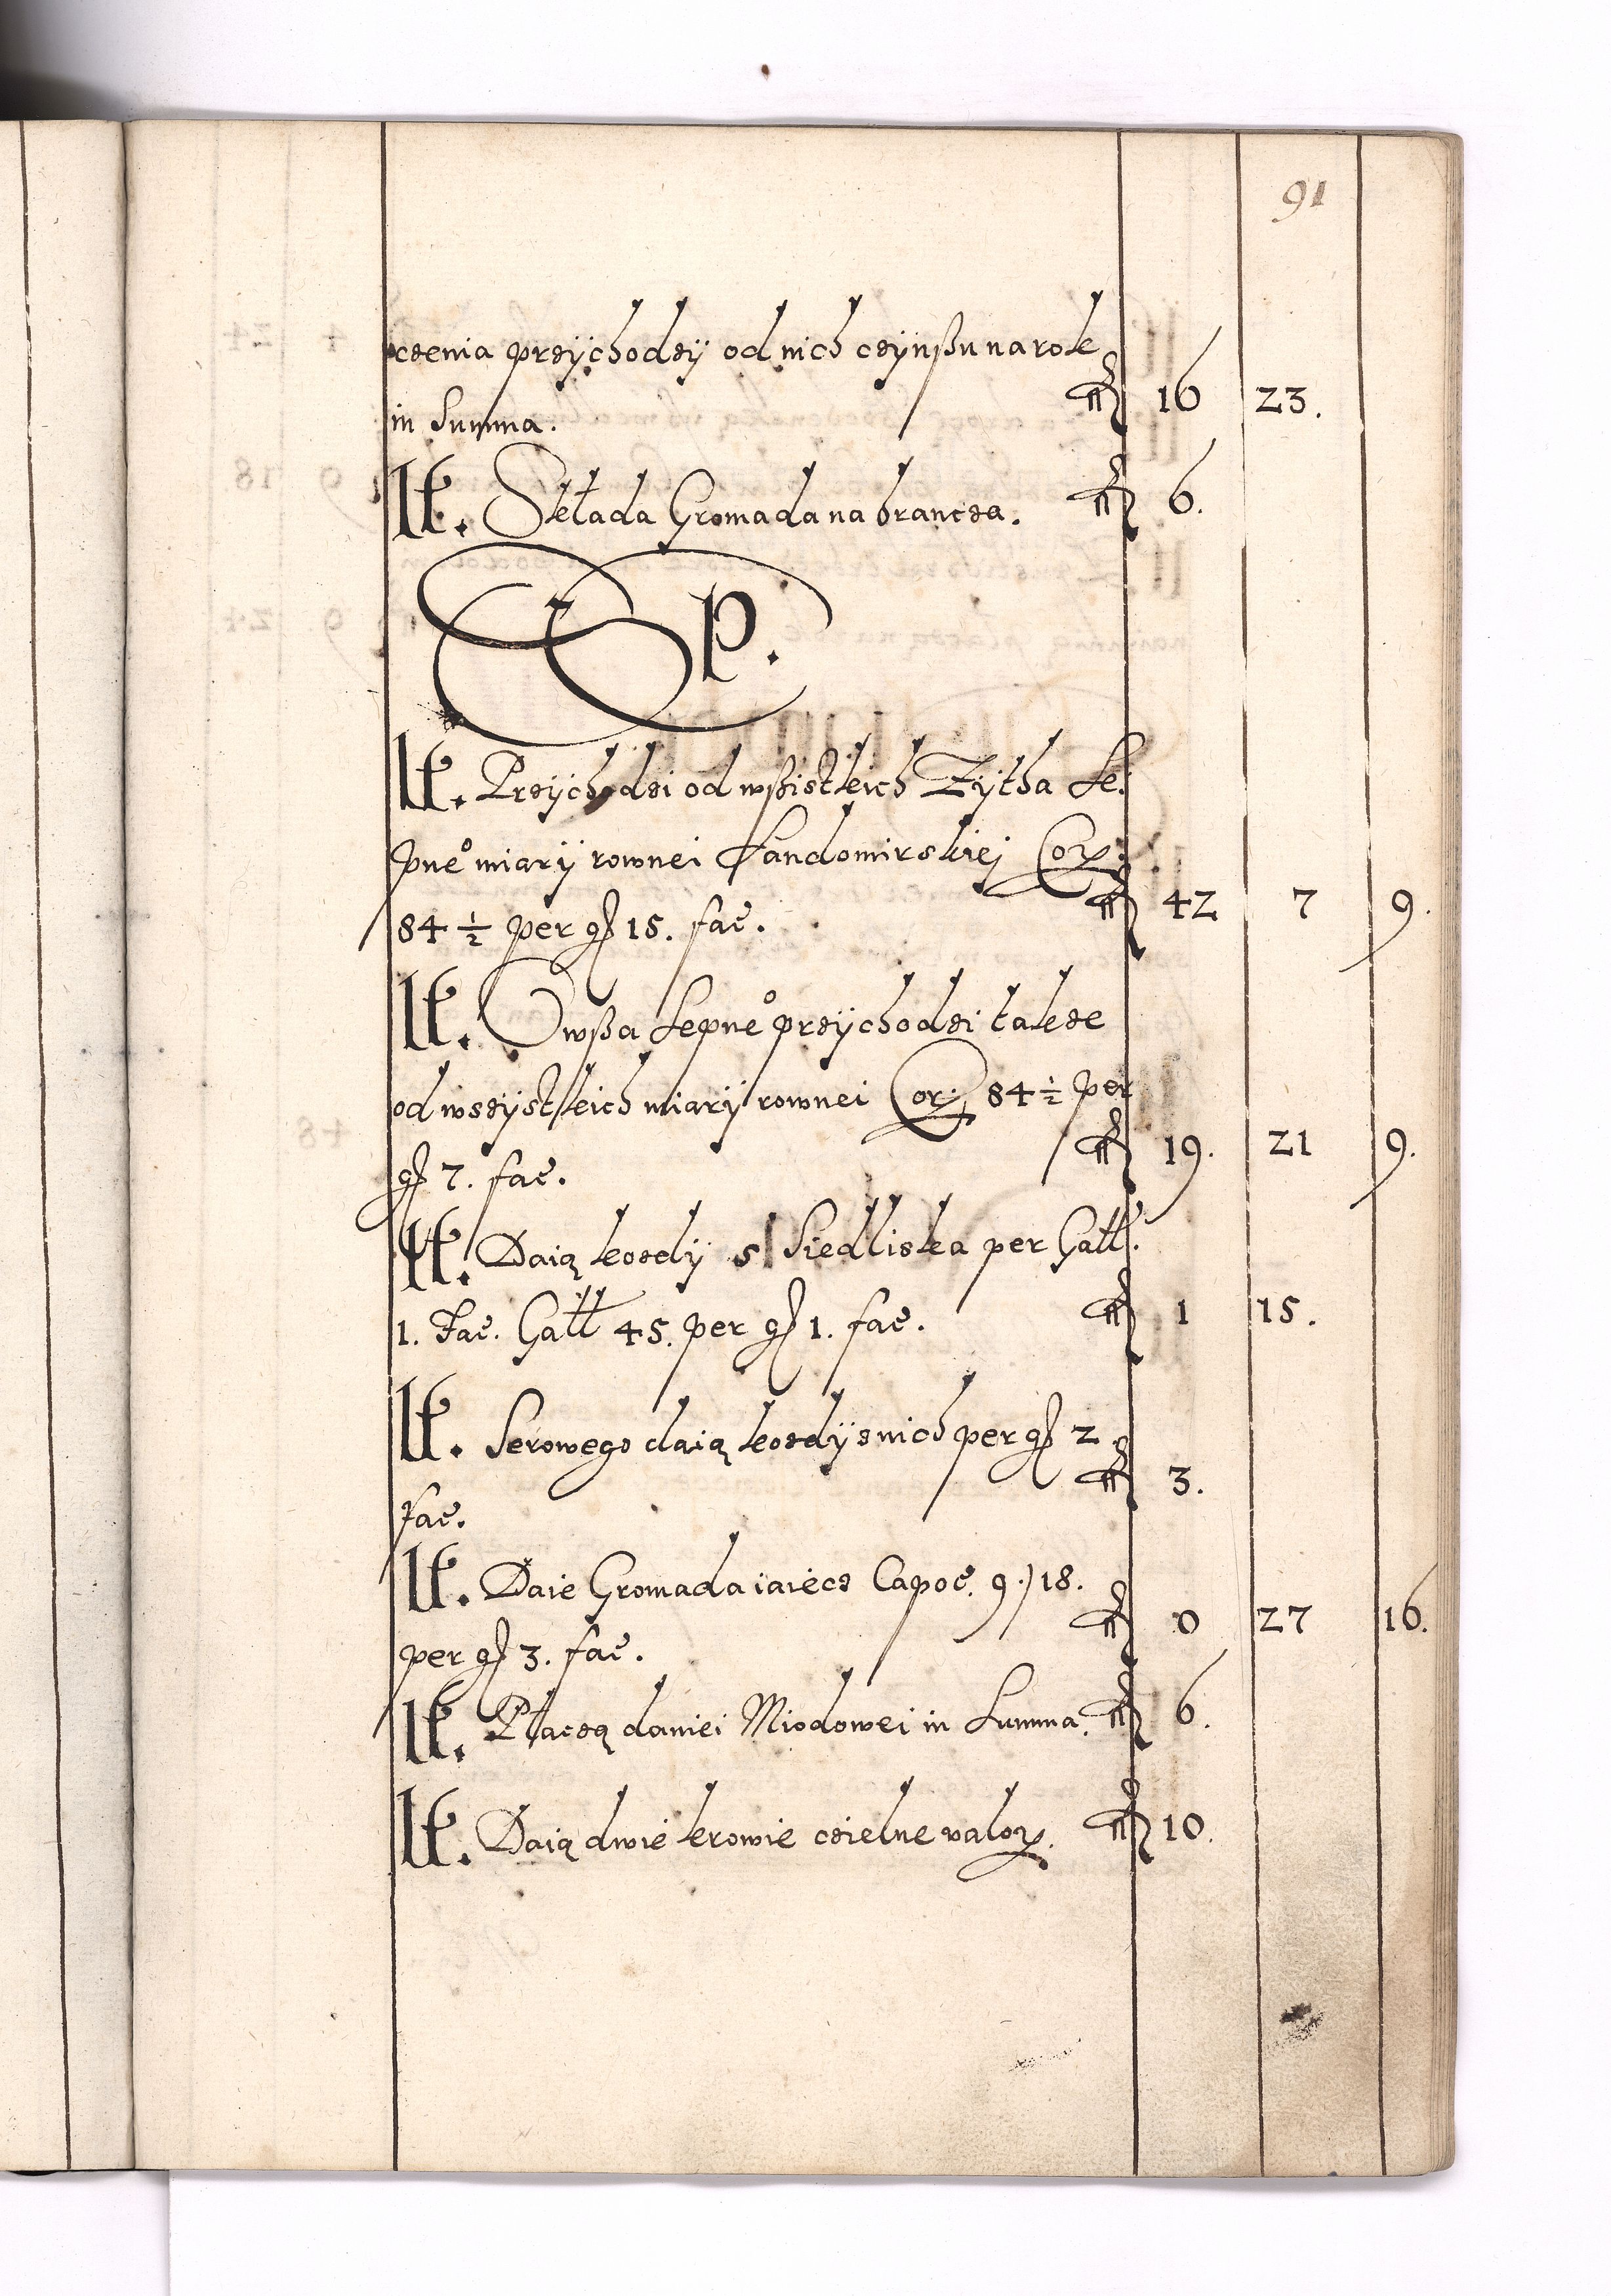 91
czenia przÿchodzÿ od nich czÿnßu na rok
in Summa. fl 16 23.
It. Składa Gromada na brancza. fl 6.
SP.
It. Przÿchodzi od wßistkich Zÿtha Se:
pne° miarÿ rownei Sandomirskiej Cor:
84 ½ per gr 15. fac. fl 42 7 9.
It. Owßa Sepne° przÿchodzi takze
od wszÿstkich miarÿ rownei Cor: 84 ½ per
gr 7. fac. fl 19. 21 9.
It. Daią kozdÿ s Siedliska per Gall.
1. Fac. Gall 45. per gr 1. fac. fl 1 15.
It. Serowego daią kozdÿ z nich per gr 2
fac. fl 3.
It. Daie Gromada iaiecz Capoc. 9.) 18.
per gr 3. fac. fl 0 27 16.
It. Płaczą daniei Miodowei in Summa. fl 6.
It. Daią dwie krowie czielne valor. fl 10.